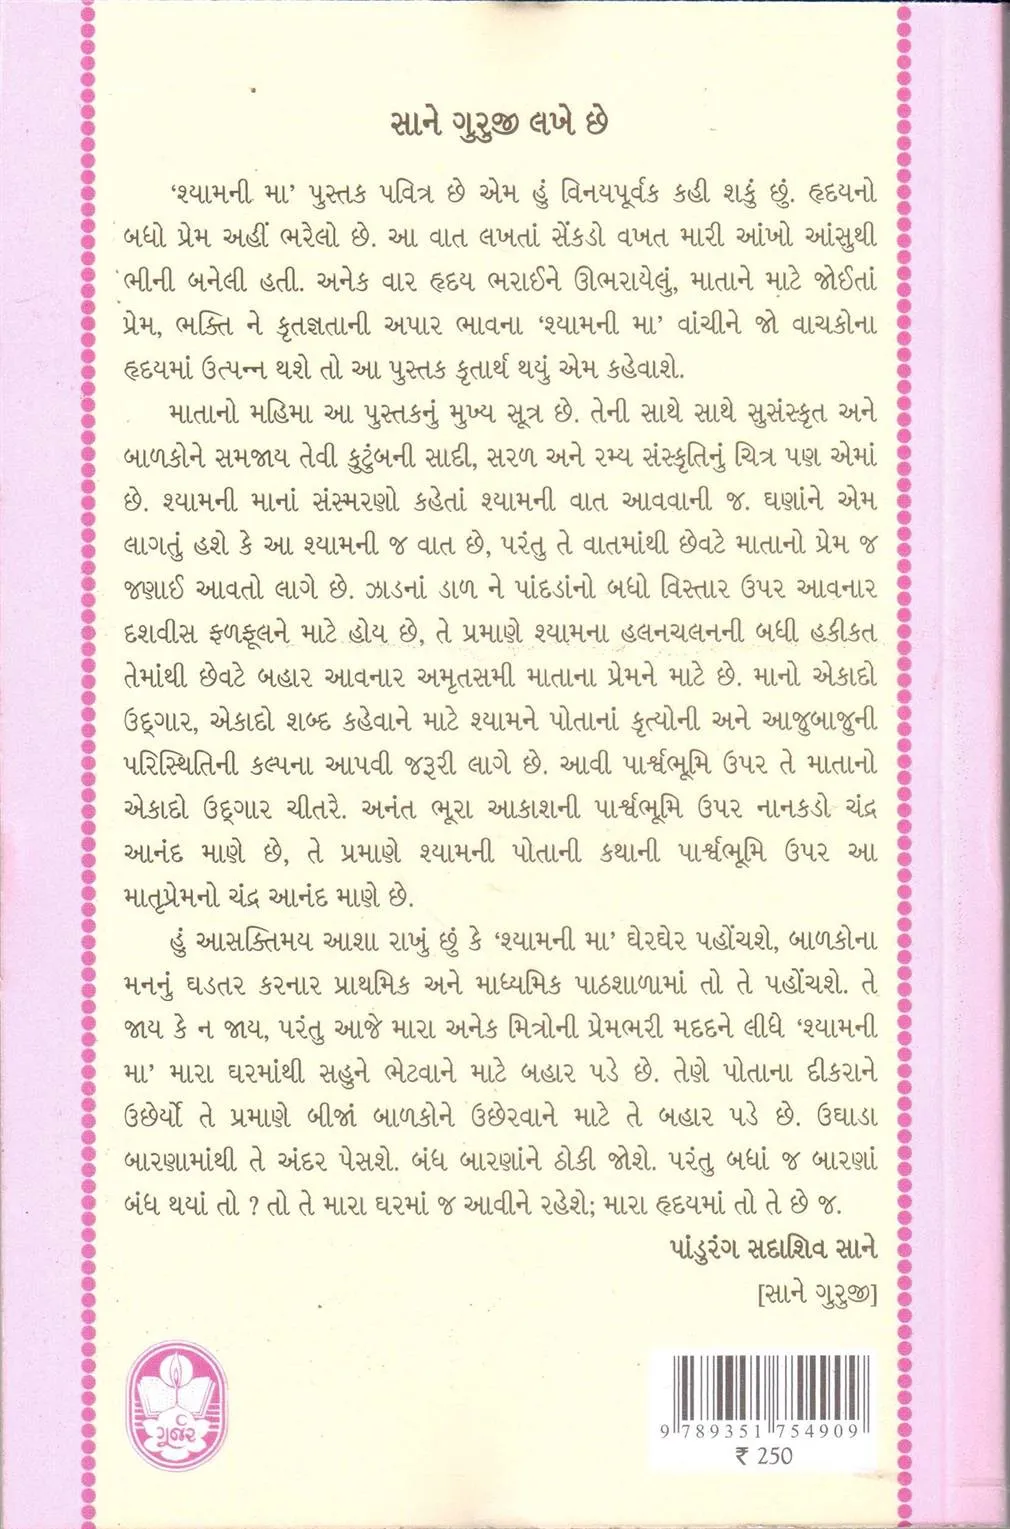 સાને ગુરુજી લખે છે
‘શ્યામની મા’ પુસ્તક પવિત્ર છે એમ હું વિનયપૂર્વક કહી શકું છું. હૃદયનો
બધો પ્રેમ અહીં ભરેલો છે. આ વાત લખતાં સેંકડો વખત મારી આંખો આંસુથી
ભીની બનેલી હતી. અનેક વાર હૃદય ભરાઈને ઊભરાયેલું, માતાને માટે જોઈતાં
પ્રેમ, ભક્તિ ને કૃતજ્ઞતાની અપાર ભાવના ‘શ્યામની મા’ વાંચીને જો વાચકોના
હૃદયમાં ઉત્પન્ન થશે તો આ પુસ્તક કૃતાર્થ થયું એમ કહેવાશે.
માતાનો મહિમા આ પુસ્તકનું મુખ્ય સૂત્ર છે. તેની સાથે સાથે સુસંસ્કૃત અને
બાળકોને સમજાય તેવી કુટુંબની સાદી, સરળ અને રમ્ય સંસ્કૃતિનું ચિત્ર પણ એમાં
છે. શ્યામની માનાં સંસ્મરણો કહેતાં શ્યામની વાત આવવાની જ. ઘણાંને એમ
લાગતું હશે કે આ શ્યામની જ વાત છે, પરંતુ તે વાતમાંથી છેવટે માતાનો પ્રેમ જ
જણાઈ આવતો લાગે છે. ઝાડનાં ડાળ ને પાંદડાંનો બધો વિસ્તાર ઉપર આવનાર
દશવીસ ફળફૂલને માટે હોય છે, તે પ્રમાણે શ્યામના હલનચલનની બધી હકીકત
તેમાંથી છેવટે બહાર આવનાર અમૃતસમી માતાના પ્રેમને માટે છે. માનો એકાદો
ઉદ્ગાર, એકાદો શબ્દ કહેવાને માટે શ્યામને પોતાનાં કૃત્યોની અને આજુબાજુની
પરિસ્થિતિની કલ્પના આપવી જરૂરી લાગે છે. આવી પાર્શ્વભૂમિ ઉપર તે માતાનો
એકાદો ઉદ્ગાર ચીતરે. અનંત ભૂરા આકાશની પાર્શ્વભૂમિ ઉપર નાનકડો ચંદ્ર
આનંદ માણે છે, તે પ્રમાણે શ્યામની પોતાની કથાની પાર્શ્વભૂમિ ઉપર આ
માતૃપ્રેમનો ચંદ્ર આનંદ માણે છે.
હું આસક્તિમય આશા રાખું છું કે ‘શ્યામની મા’ ઘેરઘેર પહોંચશે, બાળકોના
મનનું ઘડતર કરનાર પ્રાથમિક અને માધ્યમિક પાઠશાળામાં તો તે પહોંચશે. તે
જાય કે ન જાય, પરંતુ આજે મારા અનેક મિત્રોની પ્રેમભરી મદદને લીધે ‘શ્યામની
મા’ મારા ઘરમાંથી સહુને ભેટવાને માટે બહાર પડે છે. તેણે પોતાના દીકરાને
ઉછેર્યો તે પ્રમાણે બીજાં બાળકોને ઉછેરવાને માટે તે બહાર પડે છે. ઉઘાડા
બારણામાંથી તે અંદર પેસશે. બંધ બારણાંને ઠોકી જોશે. પરંતુ બધાં જ બારણાં
બંધ થયાં તો ? તો તે મારા ઘરમાં જ આવીને રહેશે; મારા હૃદયમાં તો તે છે જ.
પાંડુરંગ સદાશિવ સાને
[સાને ગુરુજી]
ગૂર્જર
9 789351 754909
₹ 250